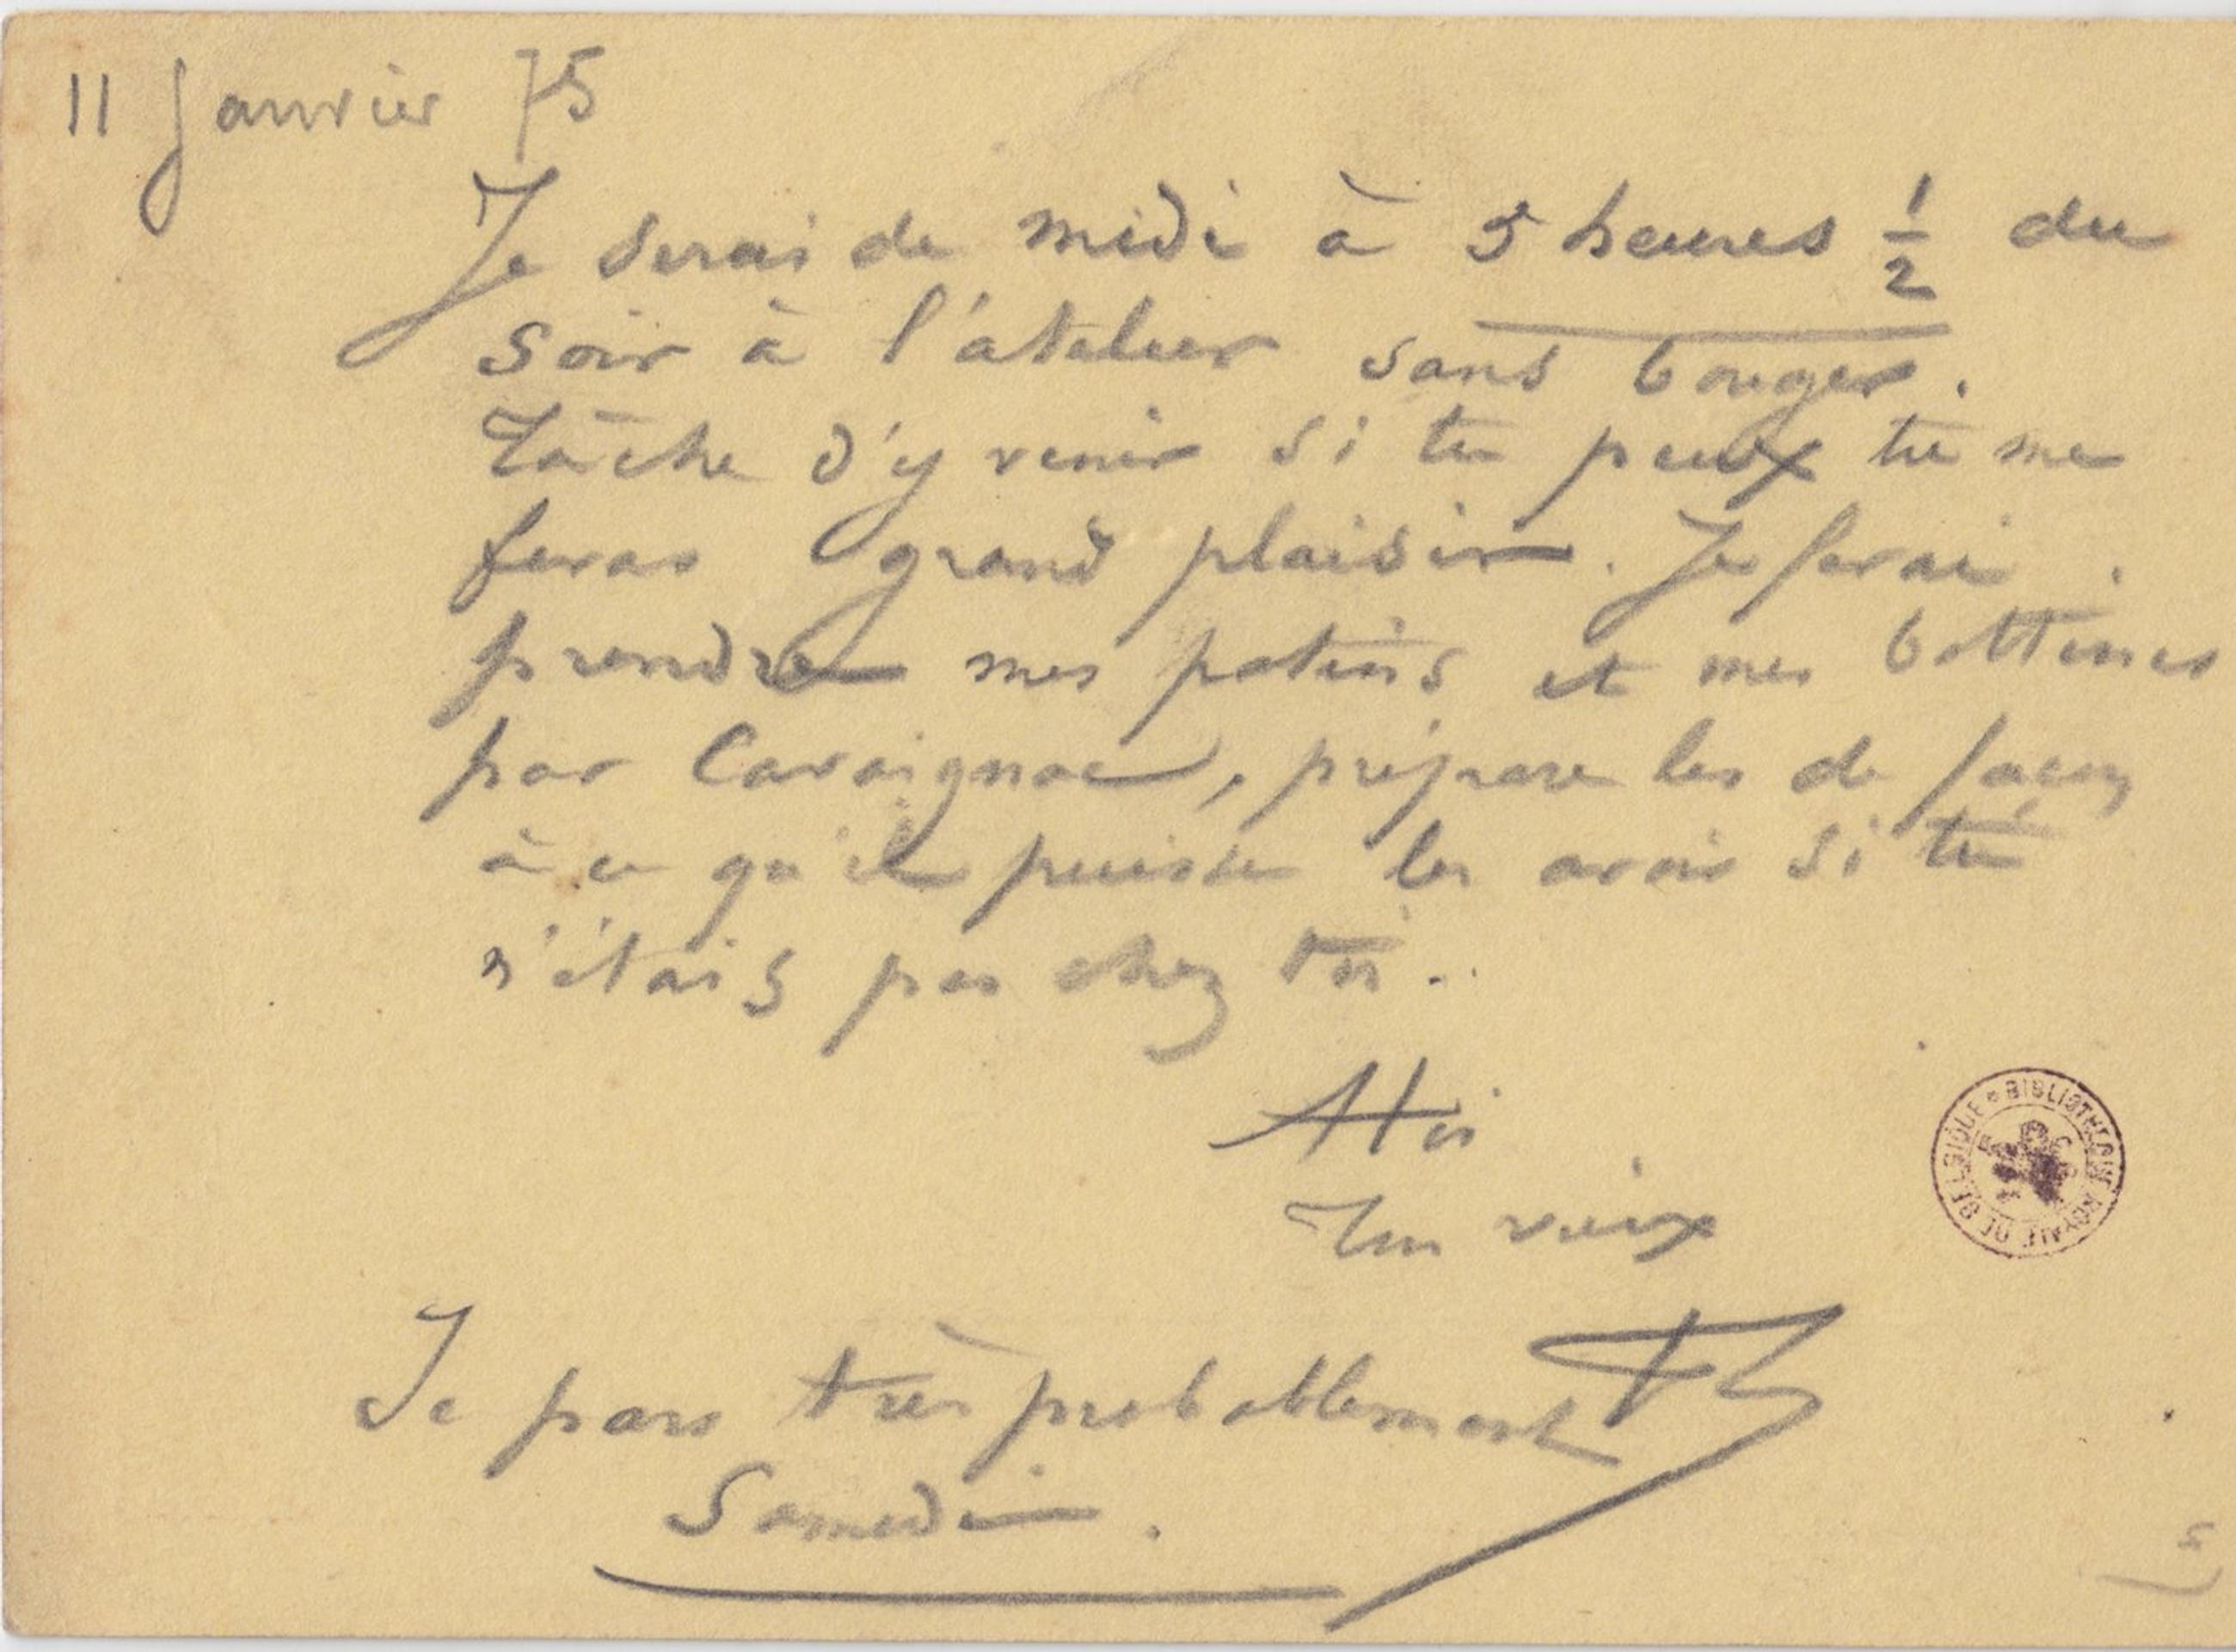 11 Janvier 75
Je serai de midi à 5 heures 1/2 du
soir à l'atelier sans bouger.
Tâche d'y venir si tu peux tu me
feras grand plaisir. Je ferai
prendre mes patins et mes bottines
par Cavaignac, prépare les de façon
à ce qu'il puisse les avoir si tu
n'étais pas chez toi.
A toi
Ton vieux
Je pars très probablement
Samedi.
BIBLIOTHEQUE ROYALE DE BELGIQUE
5